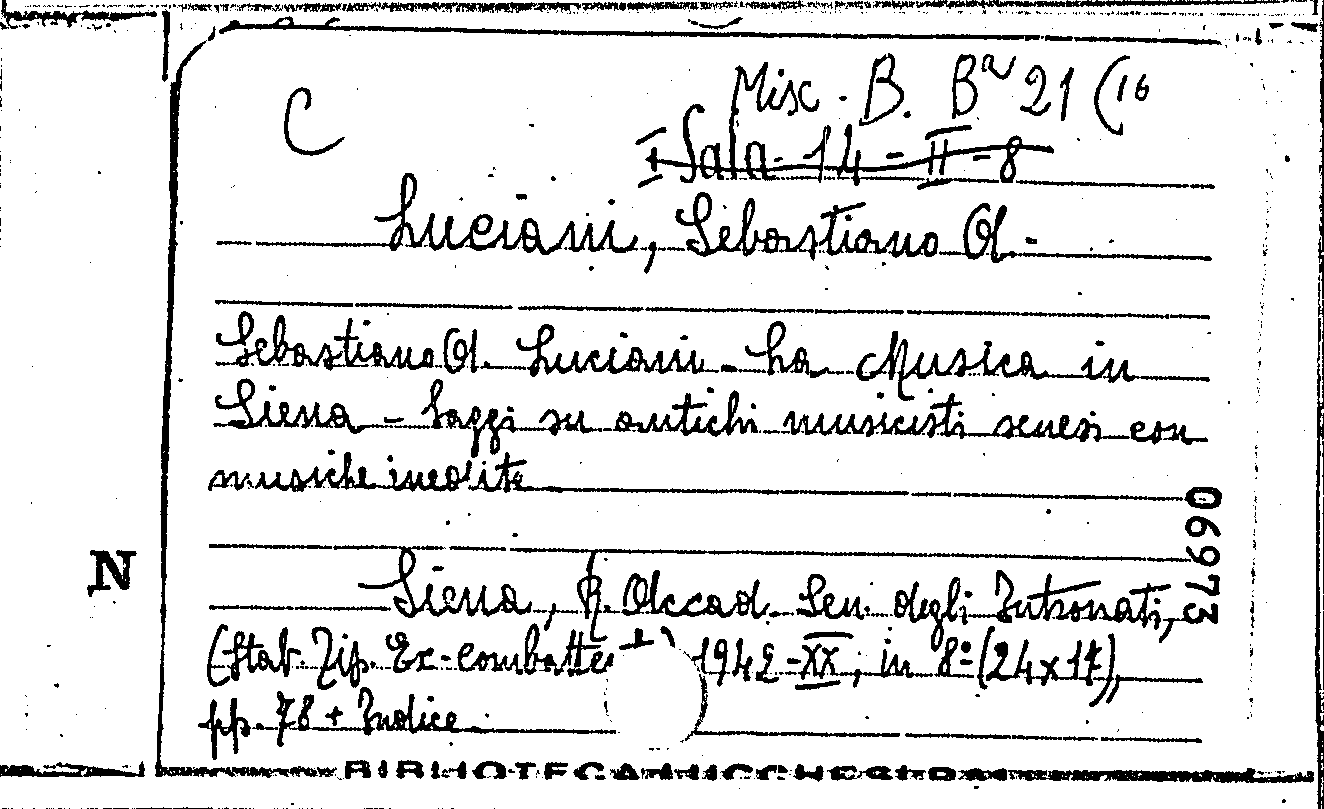 C
Misc. B. Ba 21 (16
I Sala - 14 - II - 8
Luciani, Sebastiano A.
Sebastiano A. Luciani - La Musica in
Siena - Saggi su antichi musicisti senesi con
musiche inedite
06973
N
Siena, R. Accad. Sen. degli Intronati,
(Stab. Tip. Ex-combatte 1942-XX, in 8º (24x17),
pp. 78 + Indice